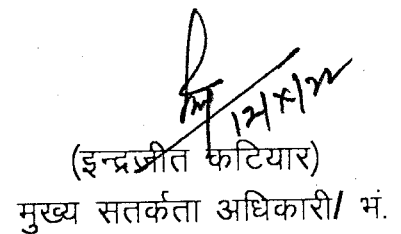 12/x/22
(इन्द्रजीत कटियार)
मुख्य सतर्कता अधिकारी/ भं.